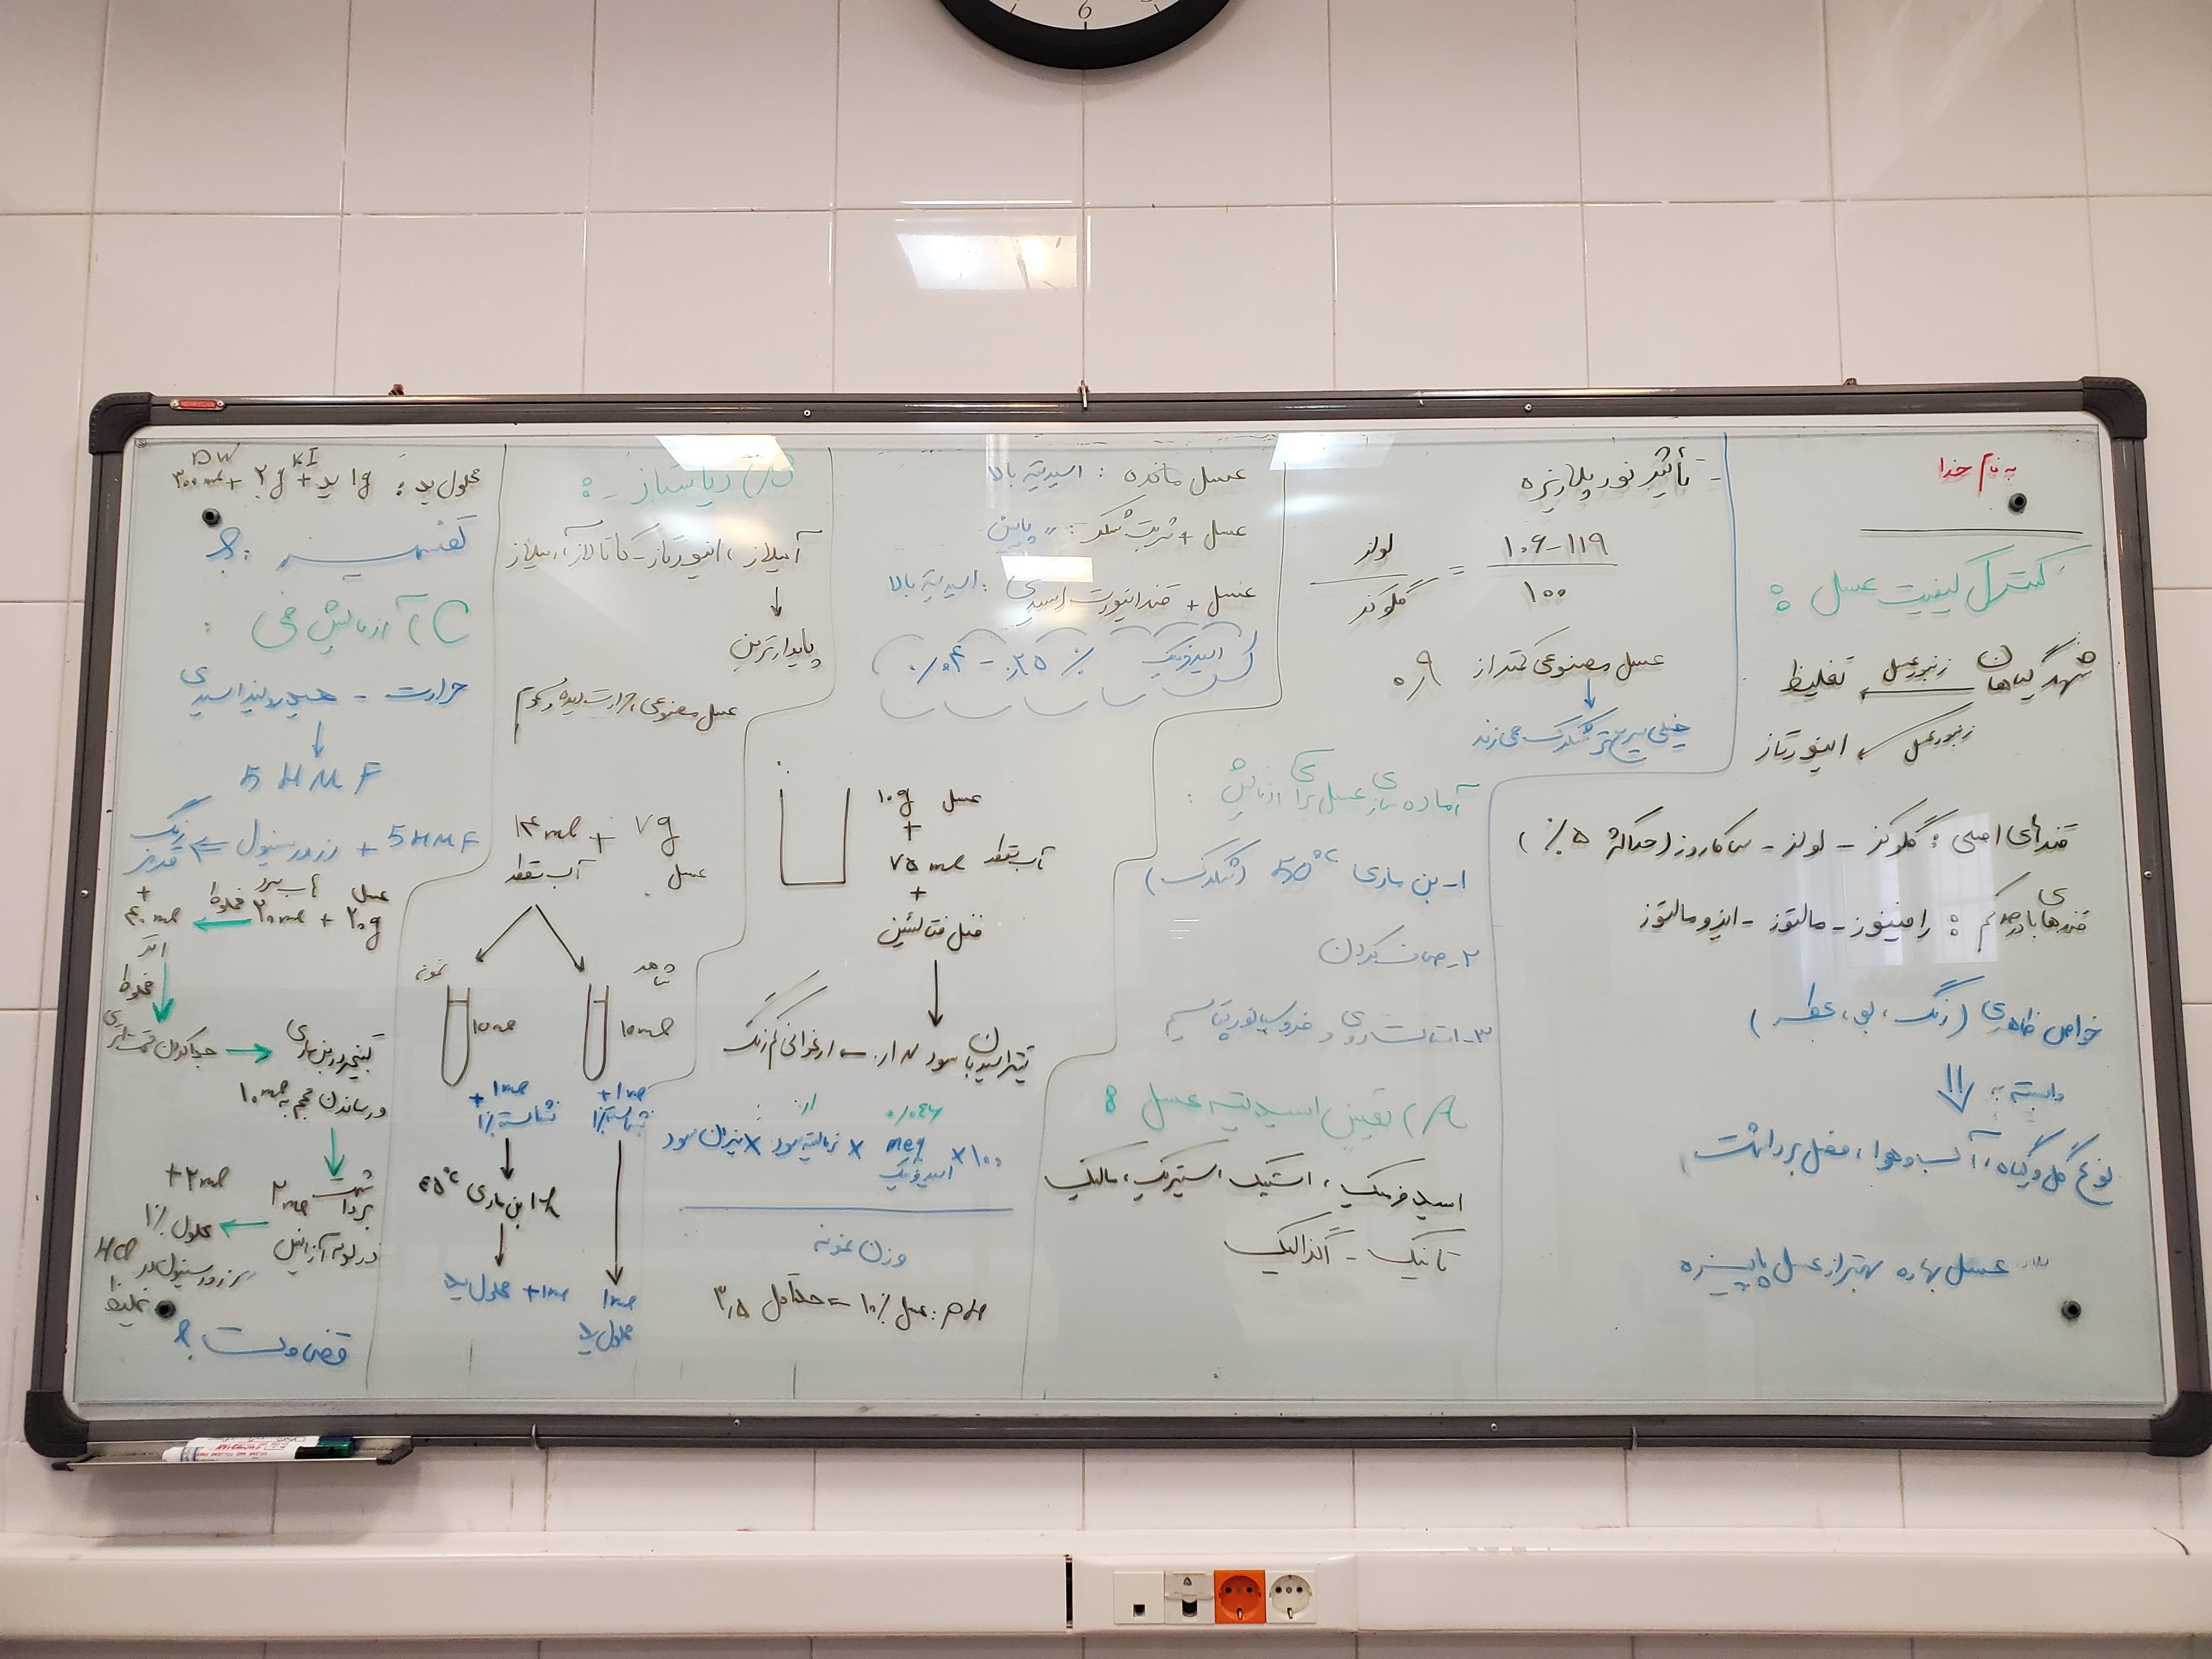 به نام خدا
کنترل کیفیت عسل :
شهد گیاهان زنبور عسل ← تغلیظ
زنبور عسل ← اینورتاز
قندهای اصلی : گلوکز - لولز - ساکاروز (حداکثر ۵٪)
قندها با درصد کم : رامینوز - مالتوز - ایزومالتوز
خواص ظاهری (رنگ ، بو ، عطر)
وابسته به ⇓
نوع گل و گیاه ، آب و هوا ، فصل برداشت
عسل بهاره بهتر از عسل پاییزه
- تأثیر نور پلاریزه
لولز / گلوکز = ۱۰۶-۱۱۹ / ۱۰۰
عسل مصنوعی کمتر از ۰٫۹
↓
خیلی سریعتر شکرک می زند
آماده سازی عسل برای آزمایش :
۱- بن ماری 50°C (شکرک)
۲- صاف کردن
۳- استات روی و فروسیانور پتاسیم
A) تعیین اسیدیته عسل :
اسید فرمیک ، استیک ، سیتریک ، مالیک
تانیک - اگزالیک
عسل مانده : اسیدیته بالا
عسل + شربت شکر : 〃 پایین
عسل + قند اینورت (اسیدی) : اسیدیته بالا
اسید فرمیک
عسل ۱۰g
+
آب مقطر ۷۵ ml
+
فنل فتالئین
↓
تیتراسیون با سود ۰٫۱ نرمال ← ارغوانی کم رنگ
۰٫۱
۰/۰۴۶
۱۰۰ × meq اسید فرمیک × نرمالیته سود × میزان سود
وزن نمونه
pH : عسل ۱۰٪ = حداقل ۳٫۵
B) دیاستاز :
آمیلاز ، اینورتاز - کاتالاز ، آمیلاز
↓
پایدارترین
عسل مصنوعی ، حرارت دیده و
۷g عسل + ۱۴ ml آب مقطر
شاهد
نمونه
10 ml
10 ml
+ ۱ml نشاسته ۱٪
+ ۱ml نشاسته ۱٪
↓
1h بن ماری ۴۵°C
↓
۱ml محلول ید
+ ۱ml محلول ید
محلول ید : ۱g ید + ۲g KI + ۳۰۰ ml DW
تفسیر :؟
C) آزمایش فی :
حرارت - هیدرولیز اسیدی
↓
5 HMF
5HMF + رزورسینول ← رنگ قرمز
۲۰g عسل + ۲۰ml آب سرد مخلوط ← + ۴۰ ml اتر
مخلوط ↓
جدا کردن قسمت اتری → تبخیر در بن ماری
و رساندن حجم به ۱۰ ml
↓
برداشت ۲ ml در لوله آزمایش ← + ۲ ml محلول ۱٪
رزورسینول در HCl غلیظ
قضاوت ؟